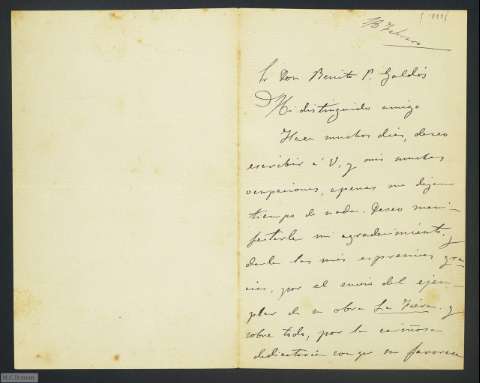 18 Febrero
Sr Don Benito P. Galdós
Mi distinguido amigo
Hace muchos dias, deseo
escribir á V. y mis muchas
ocupaciones, apenas me dejan
tiempo de nada. Deseo mani-
festarle mi agradecimiento, y
darle las mas expresivas gra-
cias, por el envio del ejem-
plar de su obra La Fiera. y
sobre todo, por la cariñosa
dedicatoria con que me favorece